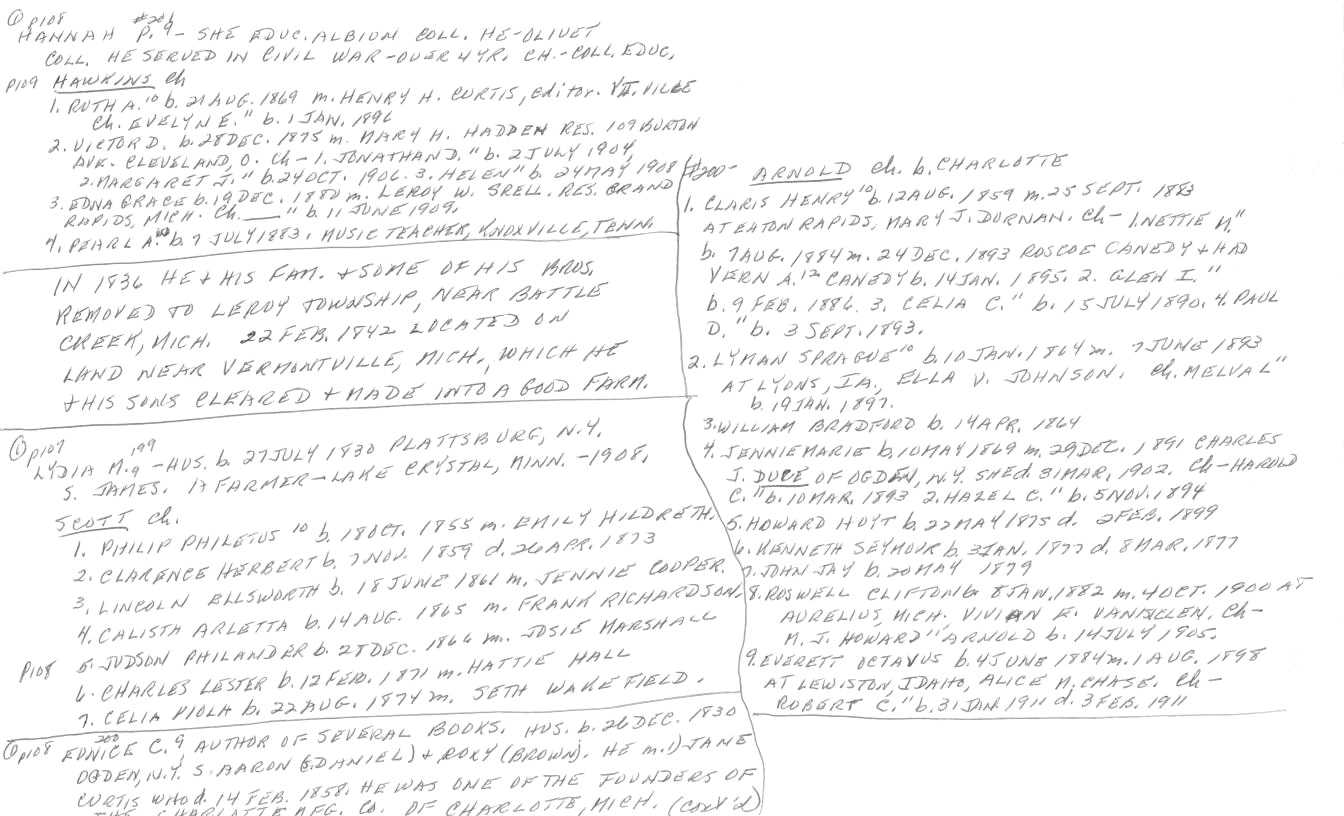 ① p108 #201
HANNAH P.⁹ - SHE EDUC. ALBION COLL. HE-OLIVET
COLL. HE SERVED IN CIVIL WAR - OVER 4 YR. CH. - COLL. EDUC.
P109 HAWKINS Ch
1. RUTH A.¹⁰ b. 21 AUG. 1869 m. HENRY H. CURTIS, Editor. VILLE
Ch. EVELYN E." b. 1 JAN. 1896
2. VICTOR D. b. 28 DEC. 1875 m. MARY H. HADDEN RES. 109 BURTON
AVE. CLEVELAND, O. Ch - 1. JONATHAN D." b. 2 JULY 1904,
2. MARGARET J." b. 24 OCT. 1906. 3. HELEN" b. 24 MAY 1908
3. EDNA GRACE b. 19 DEC. 1880 m. LEROY W. SPELL. RES. GRAND
RAPIDS, MICH. Ch. ___" b. 11 JUNE 1909.
4. PEARL A.¹⁰ b. 7 JULY 1883. MUSIC TEACHER, KNOXVILLE, TENN.
IN 1836 HE + HIS FAM. + SOME OF HIS BROS.
REMOVED TO LEROY TOWNSHIP, NEAR BATTLE
CREEK, MICH. 22 FEB. 1842 LOCATED ON
LAND NEAR VERMONTVILLE, MICH., WHICH HE
+ HIS SONS CLEARED + MADE INTO A GOOD FARM.
① p107
LYDIA M.⁹ 199 - HUS. b. 27 JULY 1830 PLATTSBURG, N.Y.
S. JAMES. A FARMER - LAKE CRYSTAL, MINN. - 1908.
SCOTT Ch.
1. PHILIP PHILETUS ¹⁰ b. 18 OCT. 1855 m. EMILY HILDRETH.
2. CLARENCE HERBERT b. 7 NOV. 1859 d. 26 APR. 1873
3. LINCOLN ELLSWORTH b. 18 JUNE 1861 m. JENNIE COOPER.
4. CALISTA ARLETTA b. 14 AUG. 1865 m. FRANK RICHARDSON.
P108 5. JUDSON PHILANDER b. 28 DEC. 1866 m. JOSIE MARSHALL
6. CHARLES LESTER b. 12 FEB. 1871 m. HATTIE HALL
7. CELIA VIOLA b. 22 AUG. 1874 m. SETH WAKEFIELD.
① p108 EUNICE C.⁹ 200 AUTHOR OF SEVERAL BOOKS. HUS. b. 26 DEC. 1830
OGDEN, N.Y. S. AARON (S. DANIEL) + ROXY (BROWN). HE m. 1) JANE
CURTIS who d. 14 FEB. 1858. HE WAS ONE OF THE FOUNDERS OF
THE CHARLOTTE MFG. CO. OF CHARLOTTE, MICH. (CONT'D)
#200 - ARNOLD Ch. b. CHARLOTTE
1. CLARIS HENRY¹⁰ b. 12 AUG. 1859 m. 25 SEPT. 1883
AT EATON RAPIDS, MARY J. DORNAN. Ch - 1. NETTIE M."
b. 7 AUG. 1884 m. 24 DEC. 1893 ROSCOE CANEDY + HAD
VERN A.¹² CANEDY b. 14 JAN. 1895. 2. GLEN I."
b. 9 FEB. 1886. 3. CELIA C." b. 15 JULY 1890. 4. PAUL
D." b. 3 SEPT. 1893.
2. LYMAN SPRAGUE¹⁰ b. 10 JAN. 1864 m. 7 JUNE 1893
AT LYONS, IA., ELLA V. JOHNSON. Ch. MELVA L"
b. 19 JAN. 1897.
3. WILLIAM BRADFORD b. 14 APR. 1864
4. JENNIE MARIE b. 10 MAY 1869 m. 29 DEC. 1891 CHARLES
J. DUCE OF OGDEN, N.Y. SHE d. 31 MAR. 1902. Ch - HAROLD
C." b. 10 MAR. 1893 2. HAZEL C." b. 5 NOV. 1894
5. HOWARD HOYT b. 22 MAY 1875 d. 2 FEB. 1899
6. KENNETH SEYMOUR b. 3 JAN. 1877 d. 8 MAR. 1877
7. JOHN JAY b. 20 MAY 1879
8. ROSWELL CLIFTON b. 8 JAN. 1882 m. 4 OCT. 1900 AT
AURELIUS, MICH. VIVIAN E. Ch -
M. J. HOWARD" ARNOLD b. 14 JULY 1905.
9. EVERETT OCTAVUS b. 4 JUNE 1884 m. 1 AUG. 1898
AT LEWISTON, IDAHO, ALICE M. CHASE. Ch -
ROBERT C." b. 31 JAN 1911 d. 3 FEB. 1911